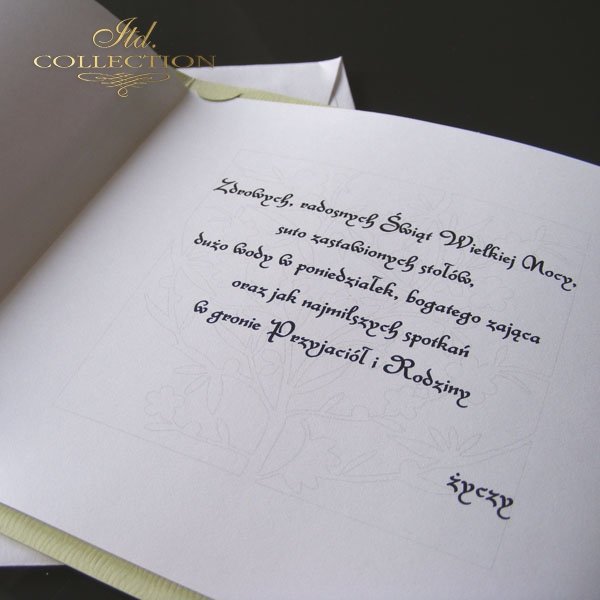 Itd.
COLLECTION
Zdrowych, radosnych Świąt Wielkiej Nocy,
suto zastawionych stołów,
dużo wody w poniedziałek, bogatego zająca
oraz jak najmilszych spotkań
w gronie Przyjaciół i Rodziny
życzy